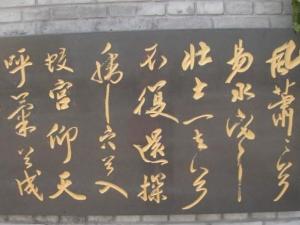 風蕭々兮
易水寒
壯士一去兮
不復還探
虎穴兮入
蛟宮仰天
呼氣兮成